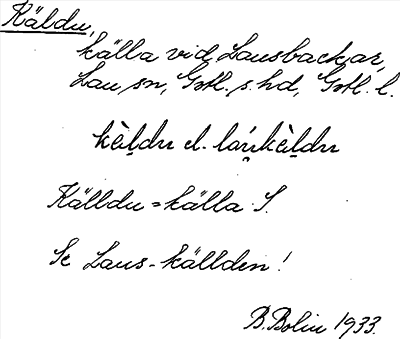 Käldu,
källa vid Lausbackar,
Lau sn, Gotl. s. hd, Gotl. l.
kȁl̥du el. laúkȁl̥du
Källdu = källa S.
Se Laus-källden!
B. Bolin 1933.